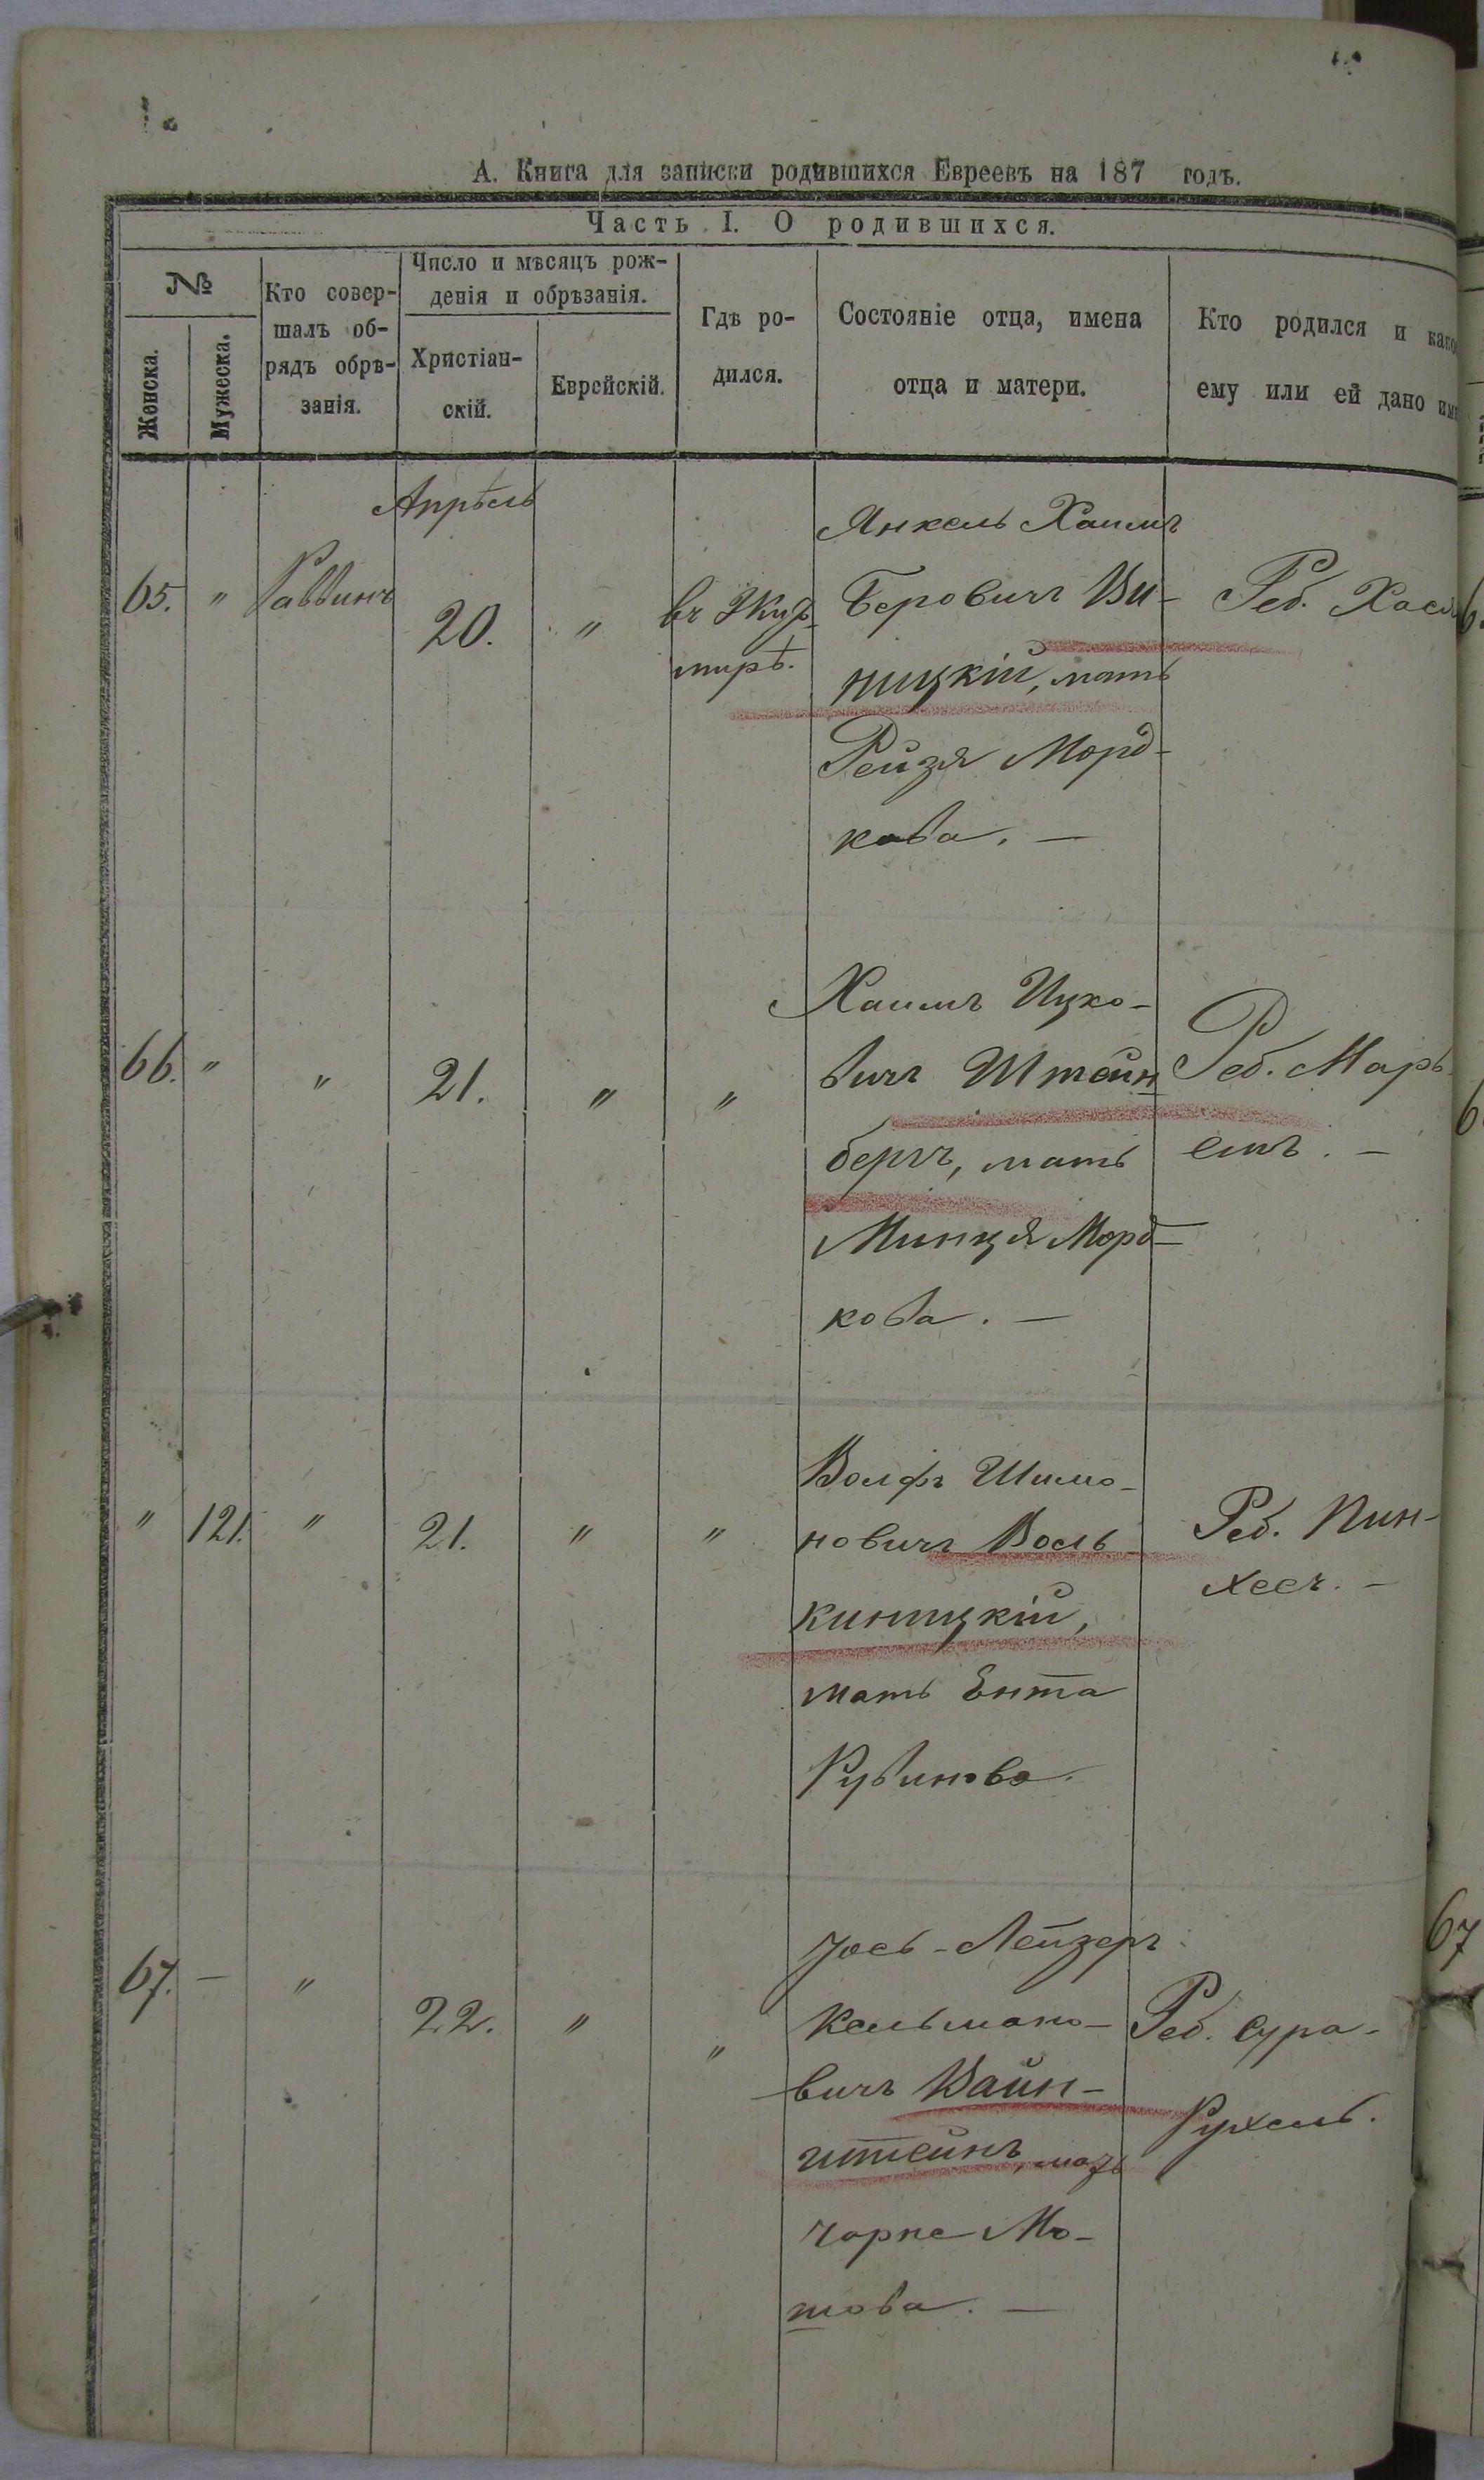 А. Книга для записки родившихся Евреевъ на 187 годъ.
Часть I. О родившихся.
№
Женска.
Мужеска.
Кто совер-
шалъ об-
рядъ обрѣ-
занія.
Число и мѣсяцъ рож-
денія и обрѣзанія.
Христіан-
скій.
Еврейскій.
Гдѣ ро-
дился.
Состояніе отца, имена
отца и матери.
Кто родился и како
ему или ей дано им
Апрѣль
65. " Раввинъ 20. " въ Жито-
мирѣ.
Янкель Хаимъ
Беровичъ Ви-
ницкій, мать
Рейзя Морд-
кова. —
Реб. Хася
66. " " 21. " "
Хаимъ Ицко-
вичъ Штейн-
бергъ, мать
Минця Морд-
кова. —
Реб. Марь
емъ. —
" 121. " 21. " "
Волфъ Шимо-
новичъ Воль-
киницкій,
мать Ента
Рувинова.
Реб. Пин-
хесъ. —
67. — " 22. " "
Іось-Лейзеръ
Кельмано-
вичъ Вайн-
штейнъ, мать
Чарне Мо-
това. —
Реб. Сура-
Рухель.
67